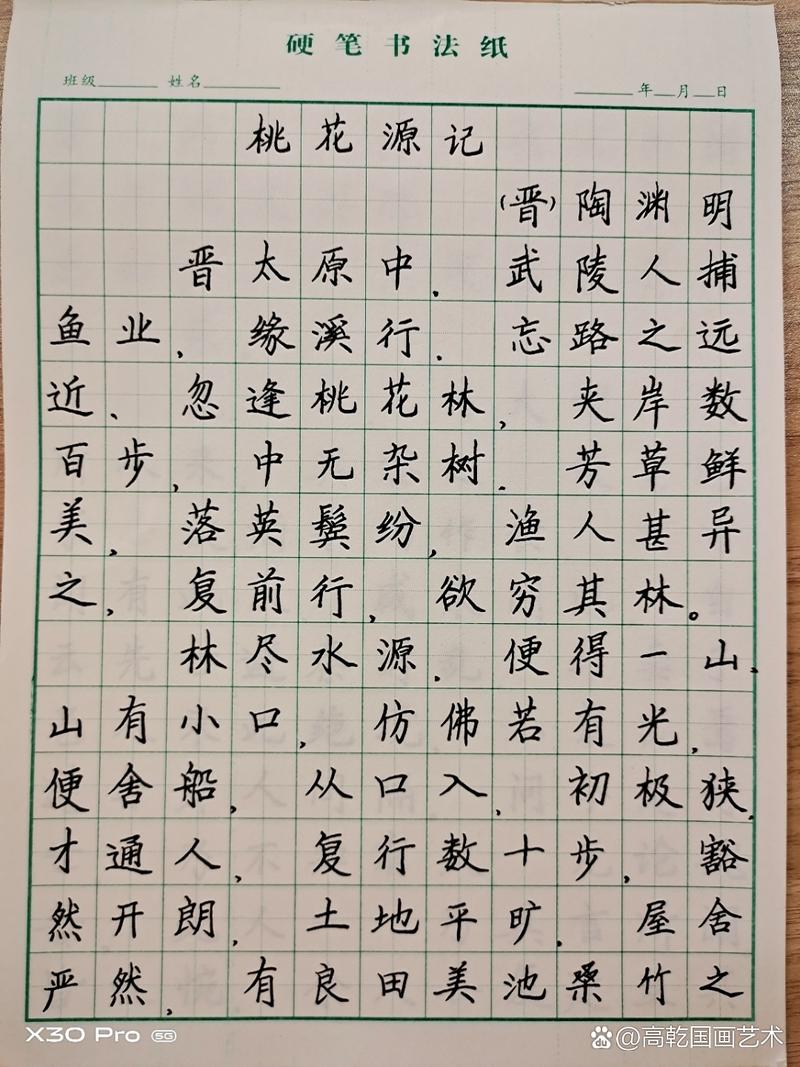 硬笔书法纸
班级______ 姓名________ ______年__月__日
桃花源记
(晋)陶渊明
晋太原中.武陵人捕
鱼业,缘溪行.忘路之远
近、忽逢桃花林,夹岸数
百步,中无杂树.芳草鲜
美,落英鬓纷,渔人甚异
之,复前行,欲穷其林。
林尽水源.便得一山、
山有小口,仿佛若有光,
便舍船,从口入,初极狭,
才通人,复行数十步,豁
然开朗,土地平旷.屋舍
严然,有良田美池桑竹之
X30 Pro 5G
@高乾国画艺术